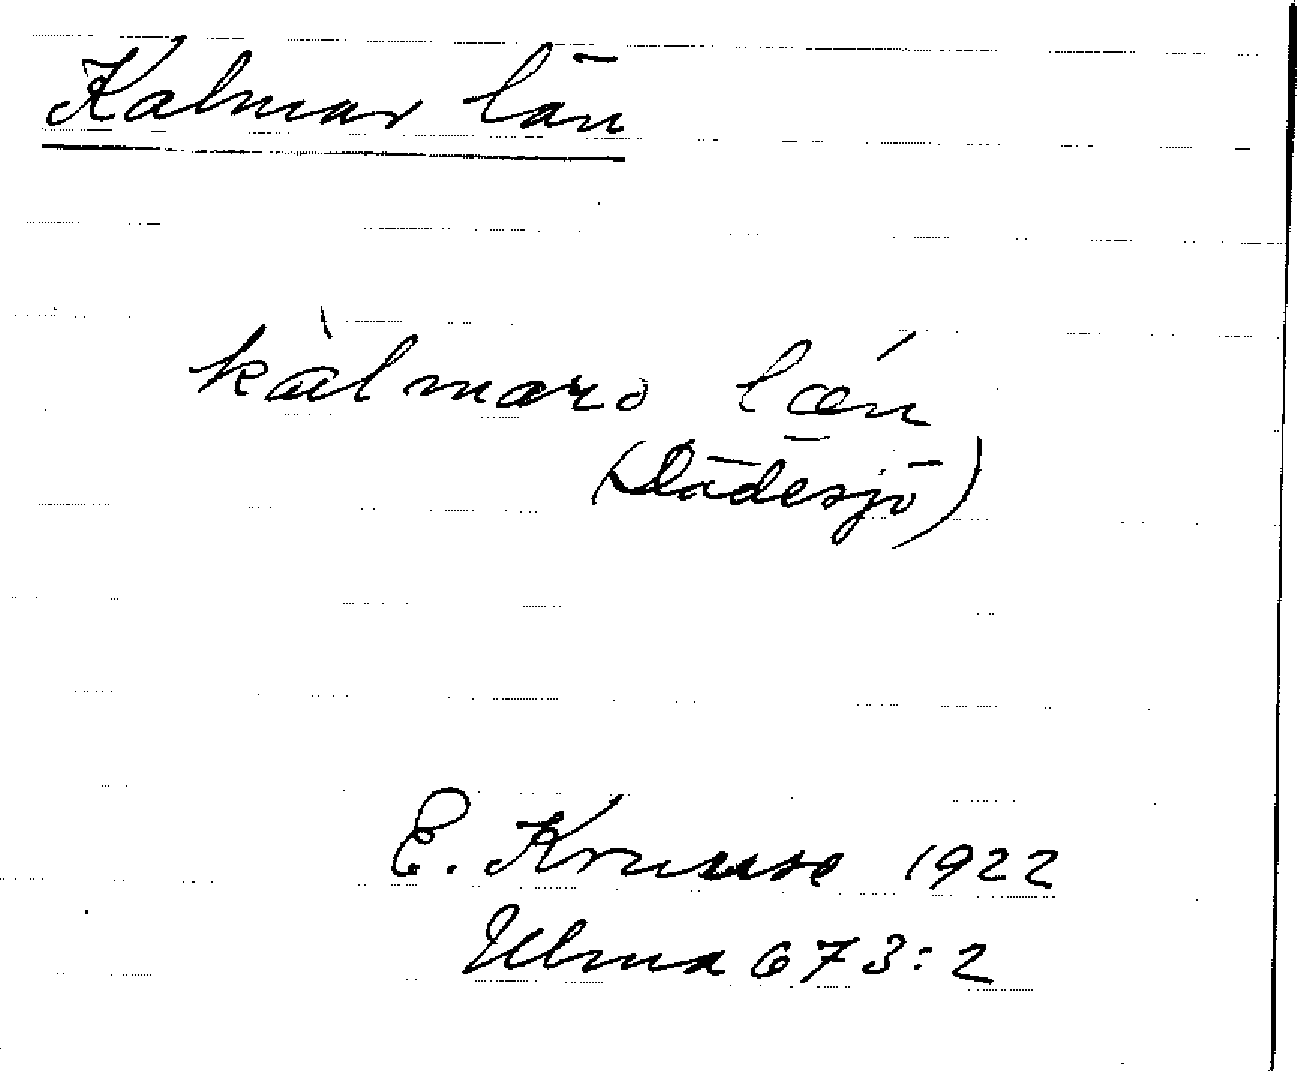 Kalmar län
kàlmarə lǽn
(Dädesjö)
E. Kruuse 1922
Ulma 673:2